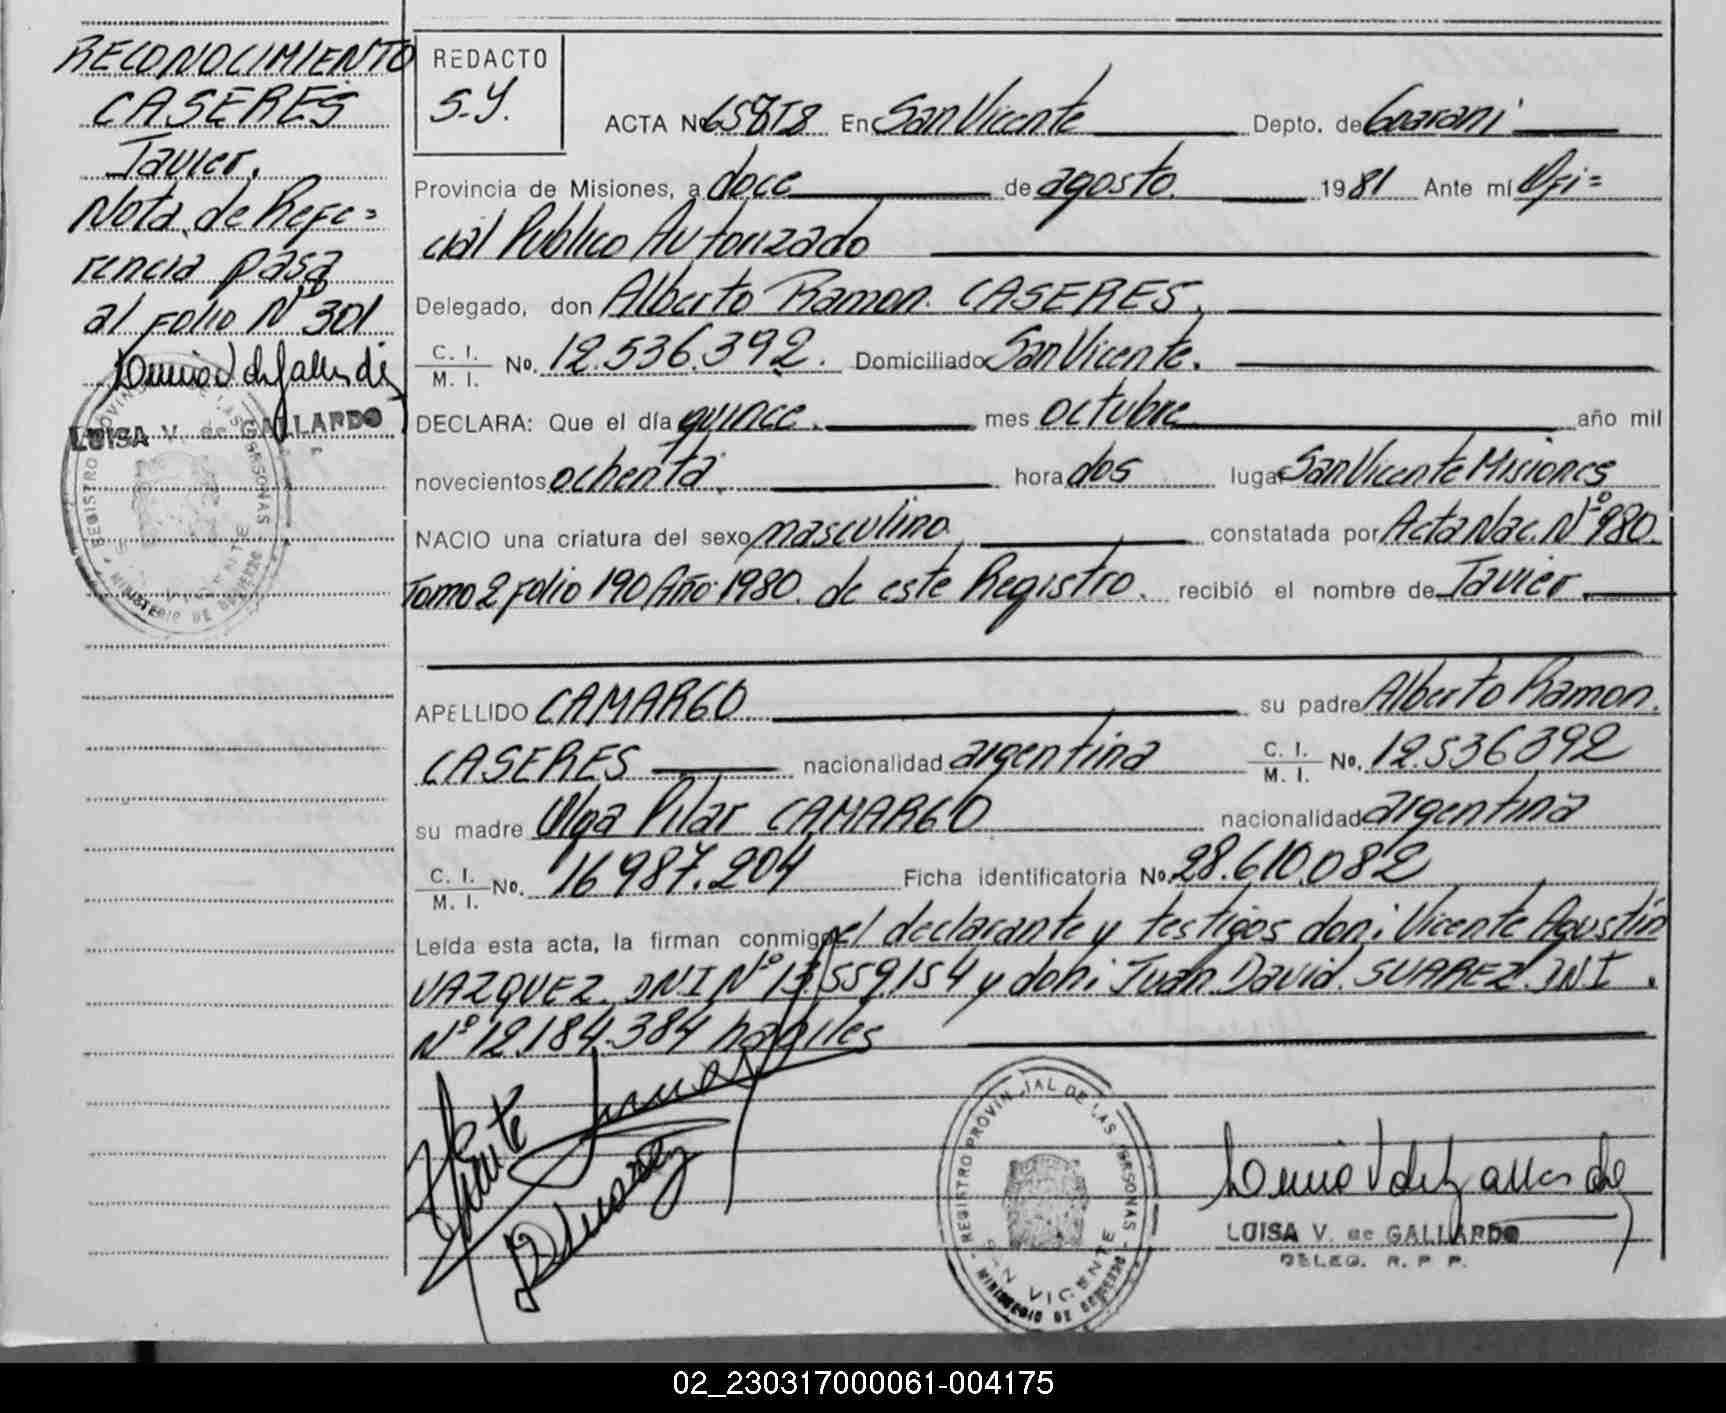 RECONOCIMIENTO
CASERES
Javier.
Nota de Refe=
rencia pasa
al Folio Nº 301
LUISA V. de GALLARDO
REDACTO
S.Y.
ACTA No. En San Vicente Depto. de Guarani
Provincia de Misiones, a doce de agosto 1981 Ante mí Ofi=
cial Publico Autorizado
Delegado, don Alberto Ramon CASERES,
C. I. M. I. No. 12.536.392. Domiciliado San Vicente.
DECLARA: Que el día quince mes octubre año mil
novecientos ochenta hora dos lugar San Vicente Misiones
NACIO una criatura del sexo masculino constatada por Acta Nac. Nº 980.
Tomo 2 Folio 190 Año 1980. de este Registro. recibió el nombre de Javier
APELLIDO CAMARGO su padre Alberto Ramon
CASERES nacionalidad argentina C. I. M. I. No. 12.536392
su madre Olga Pilar CAMARGO nacionalidad argentina
C. I. M. I. No. 16987.204 Ficha identificatoria No. 28.610.082
Leída esta acta, la firman conmigo el declarante y testigos don: Vicente Agustin
VAZQUEZ DNI Nº 13.559154 y don: Juan David SUAREZ DNI.
Nº 12.184.384 habiles
REGISTRO PROVINCIAL DE LAS PERSONAS
SAN VICENTE
MINISTERIO DE GOBIERNO
LUISA V. de GALLARDO
DELEG. R. P. P.
02_230317000061-004175